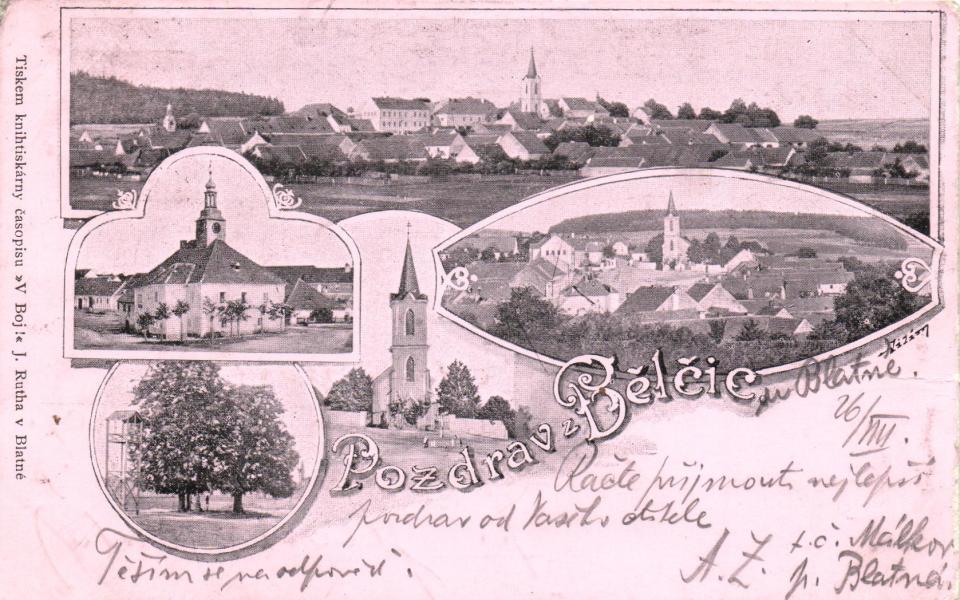 Tiskem knihtiskárny časopisu »V Boj!« J. Rutha v Blatné
Pozdrav z Bělčic
u Blatné.
26/VII.
Račte přijmouti nejlepší
pozdrav od Vašeho ctitele
A. Ž. t.č. Málkov
p. Blatná.
Těším se na odpověď.